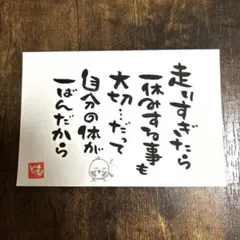 走りすぎたら
一休みする事も
大切…だって
自分の体が
一ばんだから
とも